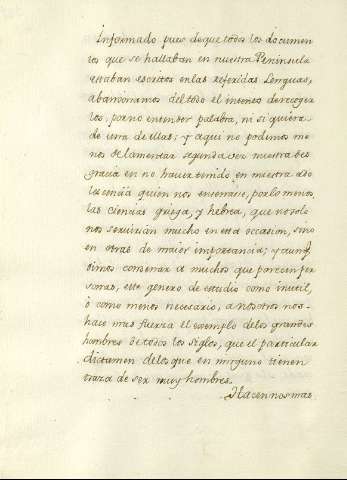 Informado pues de que todos los documen
tos que se hallaban en nuestra Peninsula
estaban escritos en las referidas Lenguas,
abandonamos del todo el intento de recoger
los, por no entender palabra, ni si quiera
de una de ellas; y aqui no podemos me
nos de lamentar segunda vez nuestra des
gracia en no haver tenido, en nuestra ado
lescencia quien nos enseñase, por lo menos
las ciencias griega, y hebrea, que no solo
nos servirian mucho en esta occasion, sino
en otras de maior importancia; y aunq.
oimos condenar a muchos que parecen per
sonas, este genero de estudio como inutil,
ò como menos necesario, a nosotros nos
hace mas fuerza el exemplo de los grandes
hombres de todos los siglos, que el particular
dictamen de los que en ninguno tienen
traza de ser muy hombres.
Hacennos mas